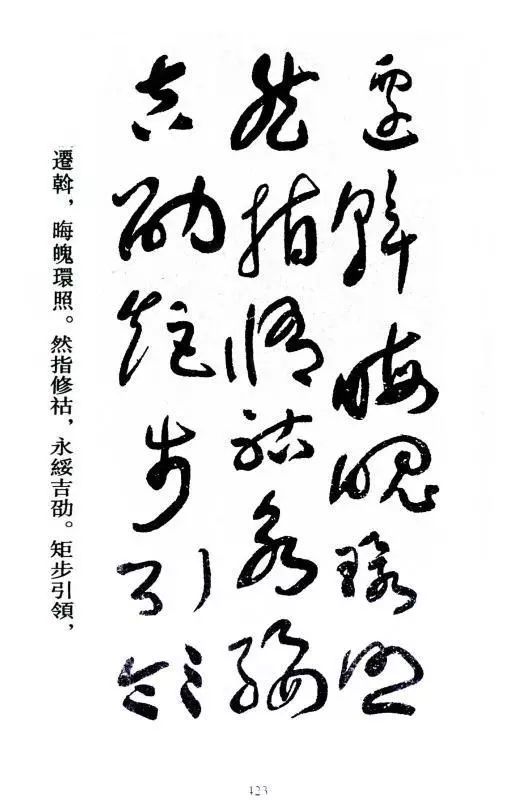 遷斡晦魄環照
然指修祜永綏
吉劭矩步引領
遷斡，晦魄環照。然指修祜，永綏吉劭。矩步引領，
423